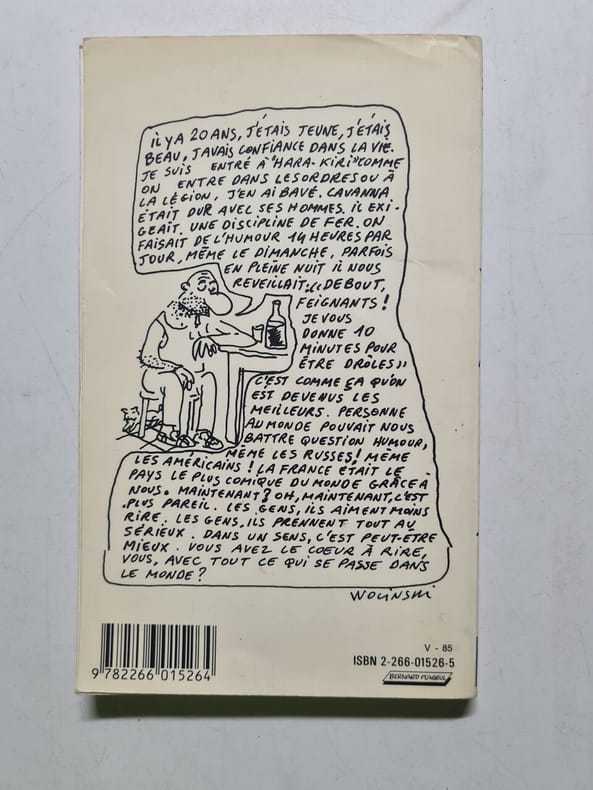 IL Y A 20 ANS, J'ÉTAIS JEUNE, J'ÉTAIS
BEAU, J'AVAIS CONFIANCE DANS LA VIE.
JE SUIS ENTRÉ À "HARA-KIRI" COMME
ON ENTRE DANS LES ORDRES OU À
LA LÉGION, J'EN AI BAVÉ. CAVANNA
ÉTAIT DUR AVEC SES HOMMES. IL EXI-
GEAIT. UNE DISCIPLINE DE FER. ON
FAISAIT DE L'HUMOUR 14 HEURES PAR
JOUR, MÊME LE DIMANCHE, PARFOIS
EN PLEINE NUIT IL NOUS
REVEILLAIT. "DEBOUT,
FEIGNANTS !
JE VOUS
DONNE 10
MINUTES POUR
ÊTRE DRÔLES"
C'EST COMME ÇA QU'ON
EST DEVENUS LES
MEILLEURS. PERSONNE
AU MONDE POUVAIT NOUS
BATTRE QUESTION HUMOUR,
MÊME LES RUSSES! MÊME
LES AMÉRICAINS ! LA FRANCE ÉTAIT LE
PAYS LE PLUS COMIQUE DU MONDE GRÂCE À
NOUS. MAINTENANT? OH, MAINTENANT, C'EST
PLUS PAREIL. LES GENS, ILS AIMENT MOINS
RIRE. LES GENS, ILS PRENNENT TOUT AU
SÉRIEUX. DANS UN SENS, C'EST PEUT-ÊTRE
MIEUX. VOUS AVEZ LE COEUR À RIRE,
VOUS, AVEC TOUT CE QUI SE PASSE DANS
LE MONDE ?
WOLINSKI
V - 85
ISBN 2-266-01526-5
9 782266 015264